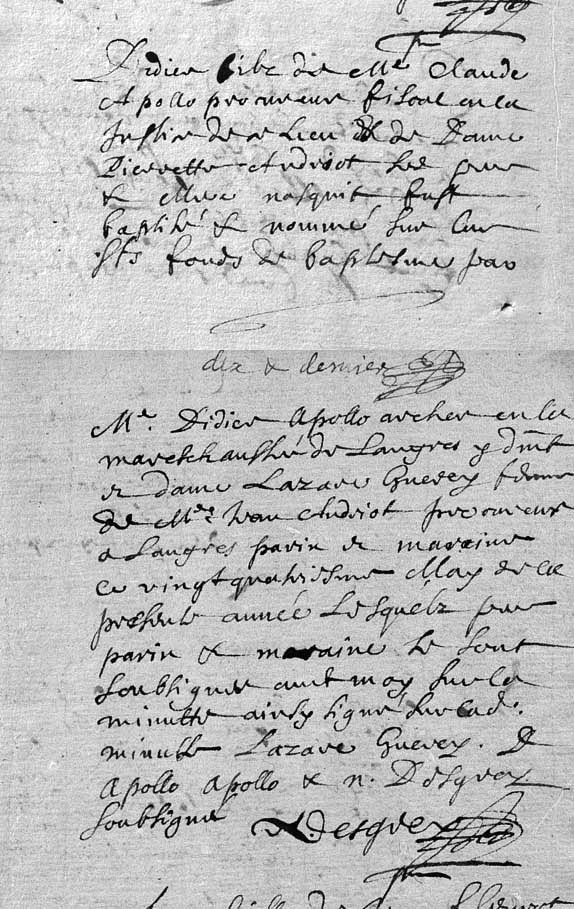 Didier filz de Me Claude
Apollo procureur fiscal en la
Justice de ce lieu & de Dame
Pierrette Andriot ses pere
& Mere nasquit fust
baptisé & nommé sur les
sts fonds de baptesme par
dix & dernier
Me. Didier Apollo archer en la
mareschaussée de Langres y dmt
et dame Lazare Guerey femme
de Me Jean Andriot procureur
a Langres parin et maraine
ce vingtquatriesme May de la
presente année Lesquelz
parin & maraine se sont
soubsignez avec moy sur la
minutte ainsy signé sur lad.
minutte Lazare Guerey. D
Apollo Apollo & n. Desgrey
soubsigné
N. Desgrey